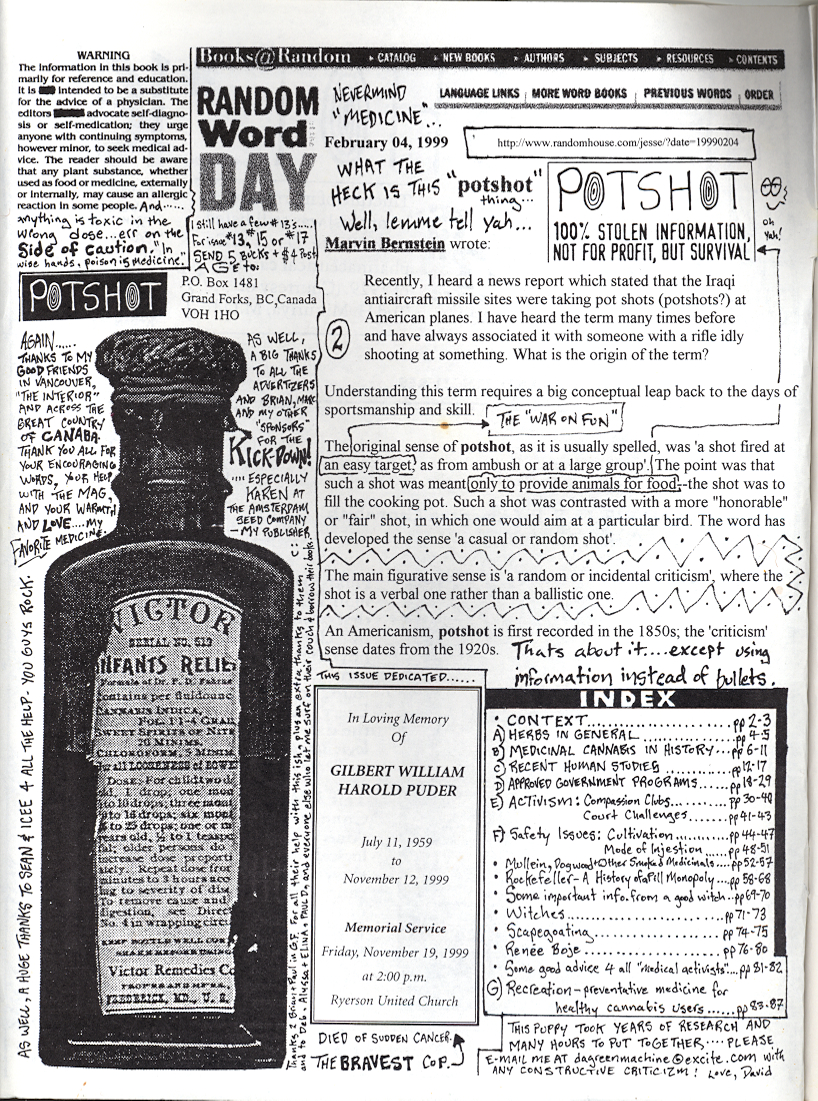 WARNING
The information in this book is pri-
marily for reference and education.
It is intended to be a substitute
for the advice of a physician. The
editors advocate self-diagno-
sis or self-medication; they urge
anyone with continuing symptoms,
however minor, to seek medical ad-
vice. The reader should be aware
that any plant substance, whether
used as food or medicine, externally
or internally, may cause an allergic
reaction in some people. And......
anything is toxic in the
wrong dose...err on the
Side of caution. "In
wise hands, poison is medicine."
POTSHOT
Books@Random
CATALOG
NEW BOOKS
AUTHORS
SUBJECTS
RESOURCES
CONTENTS
RANDOM
Word
DAY
NEVERMIND
"MEDICINE"...
LANGUAGE LINKS | MORE WORD BOOKS | PREVIOUS WORDS | ORDER
February 04, 1999
http://www.randomhouse.com/jesse/?date=19990204
WHAT THE
HECK IS THIS "potshot"
thing...
Well, lemme tell yah...
POTSHOT
100% STOLEN INFORMATION,
NOT FOR PROFIT, BUT SURVIVAL
oh
Yah!
I still have a few #13's....
For issue #13, #15 or #17
SEND 5 BUCKS + $4 Post
AGE to:
P.O. Box 1481
Grand Forks, BC, Canada
VOH 1HO
Marvin Bernstein wrote:
Recently, I heard a news report which stated that the Iraqi
antiaircraft missile sites were taking pot shots (potshots?) at
American planes. I have heard the term many times before
and have always associated it with someone with a rifle idly
shooting at something. What is the origin of the term?
2
Understanding this term requires a big conceptual leap back to the days of
sportsmanship and skill.
THE "WAR ON FUN"
The original sense of potshot, as it is usually spelled, was 'a shot fired at
an easy target, as from ambush or at a large group'. The point was that
such a shot was meant only to provide animals for food--the shot was to
fill the cooking pot. Such a shot was contrasted with a more "honorable"
or "fair" shot, in which one would aim at a particular bird. The word has
developed the sense 'a casual or random shot'.
The main figurative sense is 'a random or incidental criticism', where the
shot is a verbal one rather than a ballistic one.
An Americanism, potshot is first recorded in the 1850s; the 'criticism'
sense dates from the 1920s.
Thats about it....except using
information instead of bullets.
AGAIN......
THANKS TO MY
GOOD FRIENDS
IN VANCOUVER,
"THE INTERIOR"
AND ACROSS THE
GREAT COUNTRY
OF CANABA.
THANK YOU ALL FOR
YOUR ENCOURAGING
WORDS, YOUR HELP
WITH THE MAG,
AND YOUR WARMTH
AND LOVE....MY
FAVORITE MEDICINE.
AS WELL,
A BIG THANKS
TO ALL THE
ADVERTIZERS
AND BRIAN, MARC
AND MY OTHER
"SPONSORS"
FOR THE
KICK-DOWN!
.... ESPECIALLY
KAREN AT
THE AMSTERDAM
SEED COMPANY
- MY PUBLISHER
AS WELL, A HUGE THANKS TO SEAN & ICEE 4 ALL THE HELP - YOU GUYS ROCK.
VICTOR
SERIAL NO. 513
INFANTS RELIE
Formula of Dr. P. D. Fahrne
Contains per fluidounc
CANNABIS INDICA,
FOL. 1 1-4 GRAI
SWEET SPIRITS OF NITR
20 MINIMS,
CHLOROFORM, 2 MINIM
For all LOOSENESS of BOWE
DOSE: For child two d
ld, 1 drop; one mon
to 10 drops; three mont
to 16 drops; six mont
to 25 drops; one or m
years old, ½ to 1 teasp
ful, older persons do
increase dose proporti
ately. Repeat dose fro
minutes to 3 hours acco
ing to severity of dis
To remove cause and
digestion, see Direc
No. 4 in wrapping circ
KEEP BOTTLE WELL COR
SHAKE BEFORE USING
Victor Remedies Co
PROPR'S AND M'F'RS,
FREDERICK, MD., U. S.
Thanks 2 Brian + Paul in G.F. For all their help with this ish, plus an extra thanks to them
and to Deb, Alyssa + ELINA + PAUL D, and everyone else who let me surf on their couch & borrow their books
THIS ISSUE DEDICATED......
In Loving Memory
Of
GILBERT WILLIAM
HAROLD PUDER
July 11, 1959
to
November 12, 1999
Memorial Service
Friday, November 19, 1999
at 2:00 p.m.
Ryerson United Church
DIED OF SUDDEN CANCER.
THE BRAVEST COP.
INDEX
• CONTEXT..................pp 2-3
A) HERBS IN GENERAL..........pp 4-5
B) MEDICINAL CANNABIS IN HISTORY...pp 6-11
C) RECENT HUMAN STUDIES.......pp 12-17
D) APPROVED GOVERNMENT PROGRAMS....pp 18-29
E) ACTIVISM: Compassion Clubs.......pp 30-40
Court Challenges......pp 41-43
F) Safety Issues: Cultivation.........pp 44-47
Mode of Injestion....pp 48-51
• Mullein, Dogwood + Other Smoked Medicinals....pp 52-57
• Rockefeller - A History of a Pill Monopoly...pp 58-68
• Some important info. from a good witch..pp 69-70
• Witches.................pp 71-73
• Scapegoating.............pp 74-75
• Renée Boje...............pp 76-80
• Some good advice 4 all "medical activists"...pp 81-82
G) Recreation - preventative medicine for
healthy cannabis users......pp 83-87
THIS PUPPY TOOK YEARS OF RESEARCH AND
MANY HOURS TO PUT TOGETHER.... PLEASE
E-MAIL ME AT dagreenmachine@excite.com with
ANY CONSTRUCTIVE CRITICIZM! Love, David